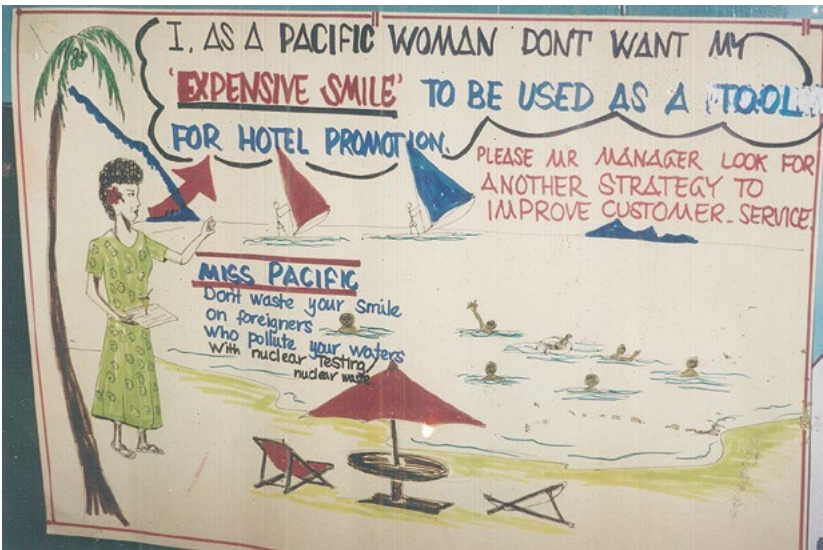 I, AS A PACIFIC WOMAN DONT WANT MY
'EXPENSIVE SMILE' TO BE USED AS A TOOL
FOR HOTEL PROMOTION.
PLEASE MR MANAGER LOOK FOR
ANOTHER STRATEGY TO
IMPROVE CUSTOMER-SERVICE.
MISS PACIFIC
Dont waste your smile
on foreigners
who pollute your waters
With nuclear Testing/
nuclear waste